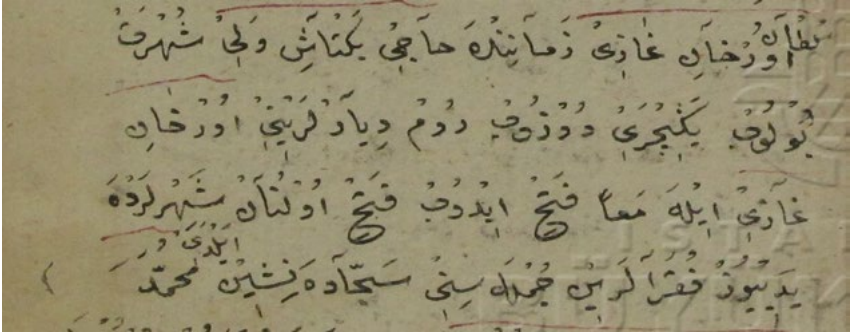 سُلْطَانْ اُورْخَانِ غَازِىْ زَمَانِنْدَهَ حَاجِىْ بَكْتَاشِ وَلِىْ شُهْرَتْ
بُولُوبْ يَكِيْچَرِىْ دُوزُوبْ رُومْ دِيَارْلَرِيْنِىْ اُورْخَانِ
غَازِىْ اِيْلَهَ مَعاً فَتْحْ اِيْدُوبْ فَتْحْ اُولُنَانْ شَهْرلَرْدَهَ
اِيْلَدِىْ
يَدِيْيُوزْ فُقَرَالَرِيْنْ جُمْلَهَ سِنِىْ سَجَّادَهَ نِشِيْنْ مُحَمَّدْ